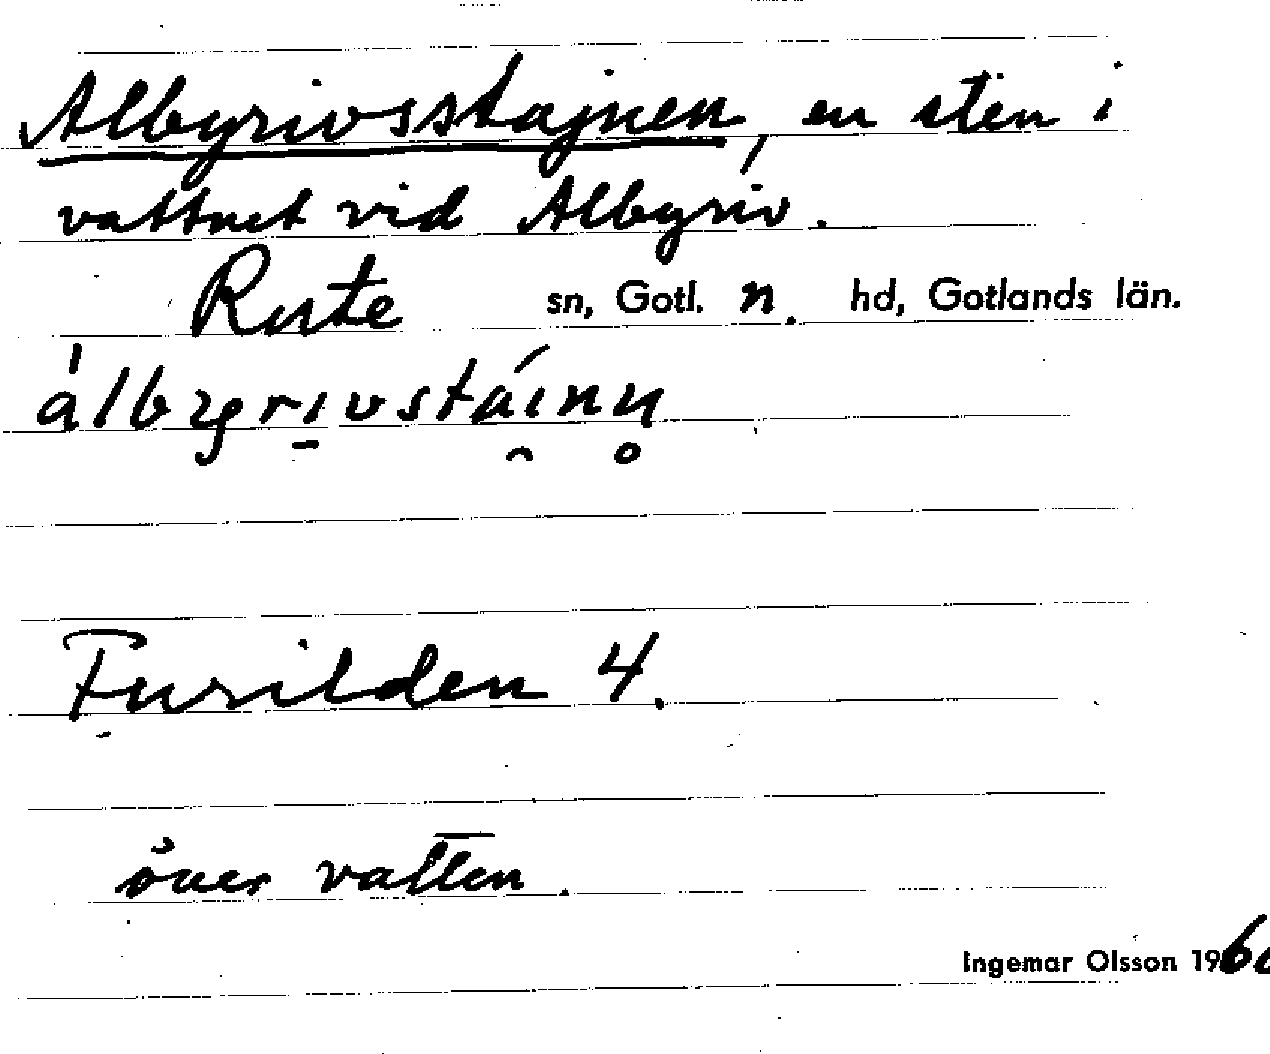 Albyrivsstajnen, en sten i
vattnet vid Albyriv.
Rute sn, Gotl. n. hd, Gotlands län.
Furilden 4.
över vatten.
Ingemar Olsson 196